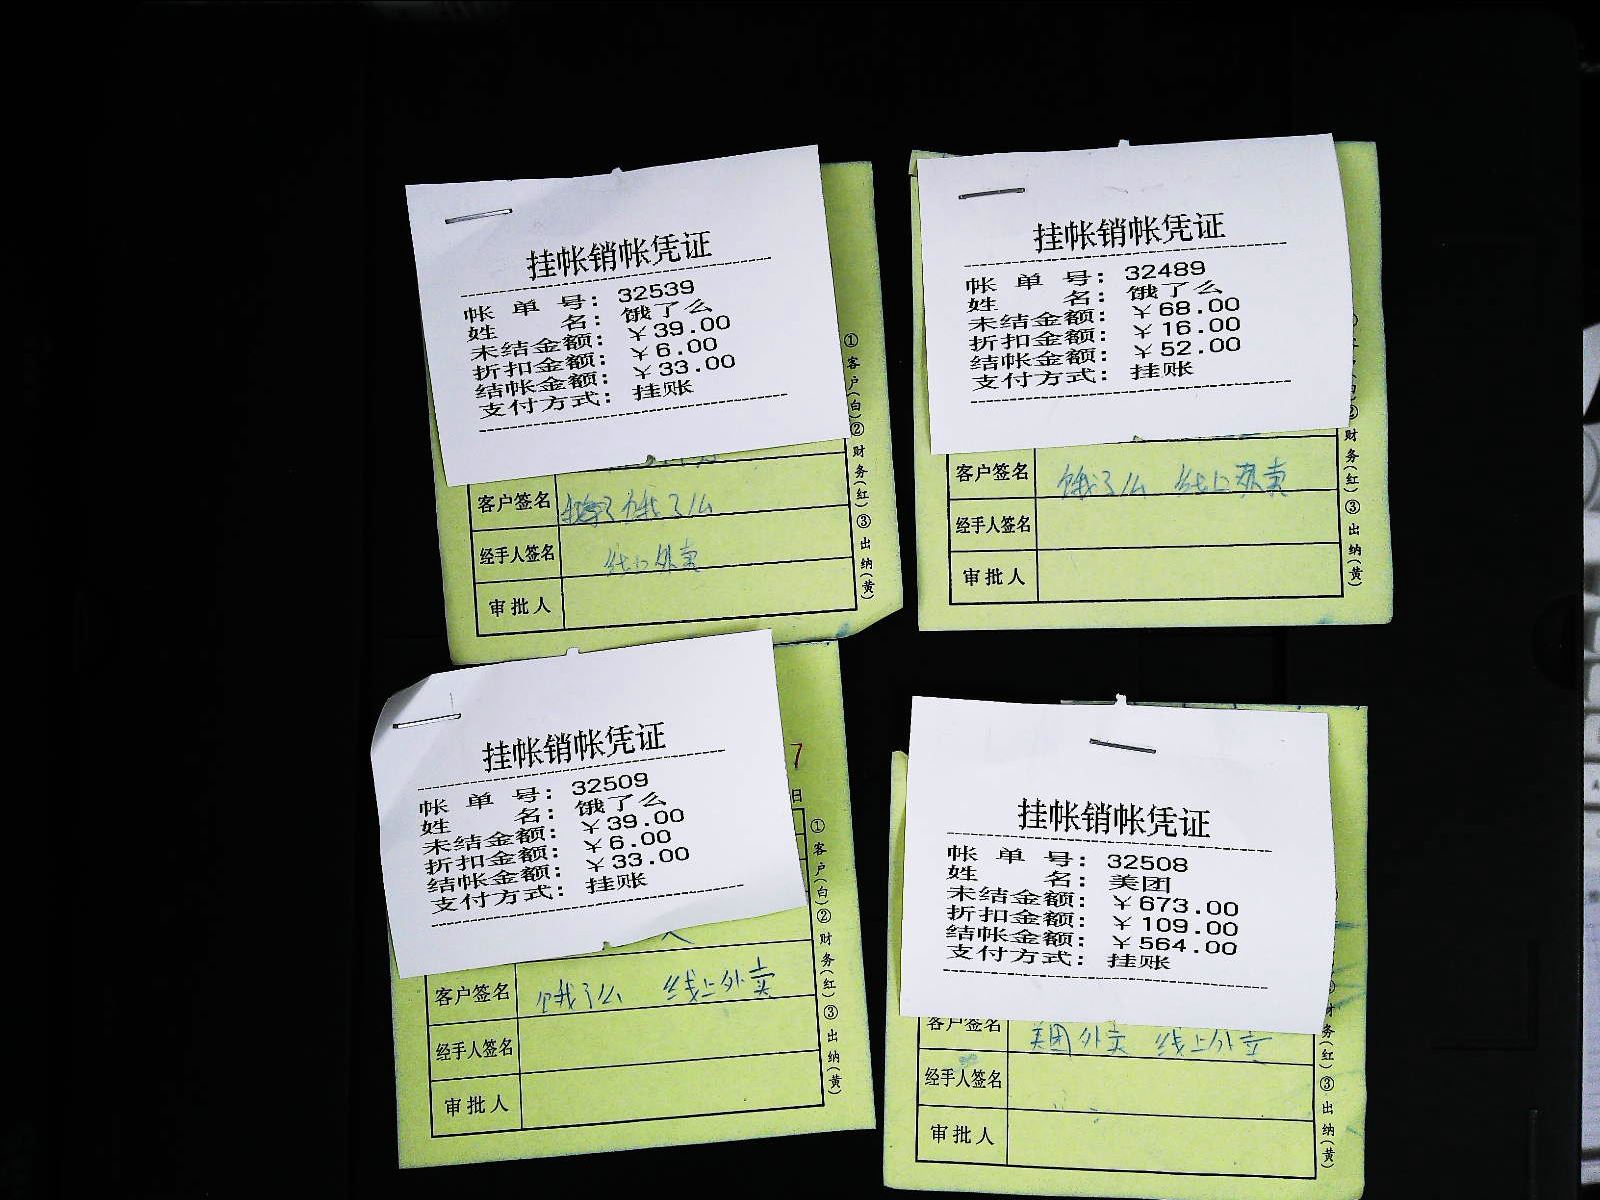 挂帐销帐凭证
帐单号：32539
姓名：饿了么
未结金额：￥39.00
折扣金额：￥6.00
结帐金额：￥33.00
支付方式：挂账
客户签名 饿了么
经手人签名 线上外卖
审批人
①客户(白)②财务(红)③出纳(黄)
挂帐销帐凭证
帐单号：32489
姓名：饿了么
未结金额：￥68.00
折扣金额：￥16.00
结帐金额：￥52.00
支付方式：挂账
客户签名 饿了么 线上外卖
经手人签名
审批人
②财务(红)③出纳(黄)
挂帐销帐凭证
帐单号：32509
姓名：饿了么
未结金额：￥39.00
折扣金额：￥6.00
结帐金额：￥33.00
支付方式：挂账
7
日
客户签名 饿了么 线上外卖
经手人签名
审批人
①客户(白)②财务(红)③出纳(黄)
挂帐销帐凭证
帐单号：32508
姓名：美团
未结金额：￥673.00
折扣金额：￥109.00
结帐金额：￥564.00
支付方式：挂账
客户签名 美团外卖 线上外卖
经手人签名
审批人
财务(红)③出纳(黄)